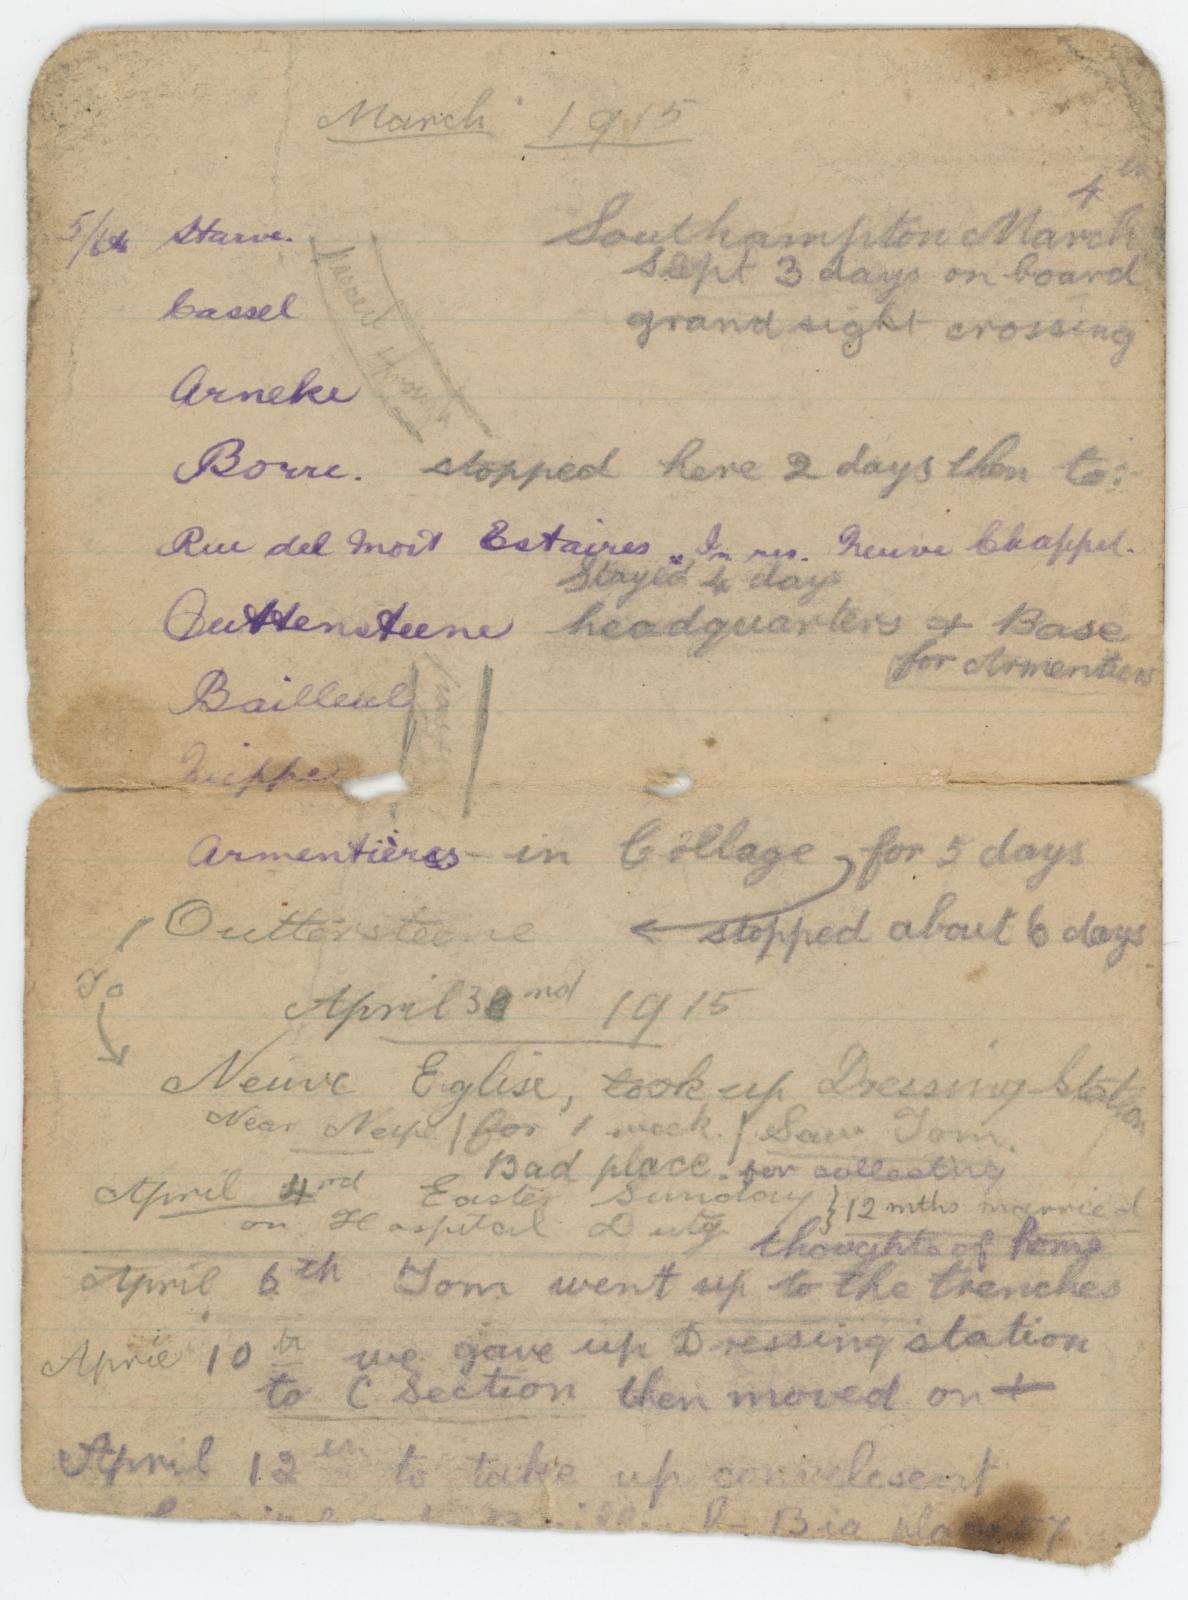 March 1915
4th
5/64 Starve. Southampton March
passed through
slept 3 days on board
Cassel grand sight crossing
Arneke
Borre. stopped here 2 days then to:-
Rue del Mort Estaires Neuve Chappel.
Stayed 4 day
Outtensteene headquarters + Base
for Armentiers
Bailleul
Nieppe
Armentières - in Collage for 5 days
Outtersteene stopped about 6 days
To
April 3nd 1915
Neuve Eglise, took up Dressing Station
Near for 1 week. Saw Tom.
Bad place. for collecting
April 4rd Easter Sunday 12 mths married
on Hospital Duty thoughts of home
April 6th Tom went up to the trenches
April 10th we gave up Dressing station
to C Section then moved on +
April 12th to take up convelesent
Big place